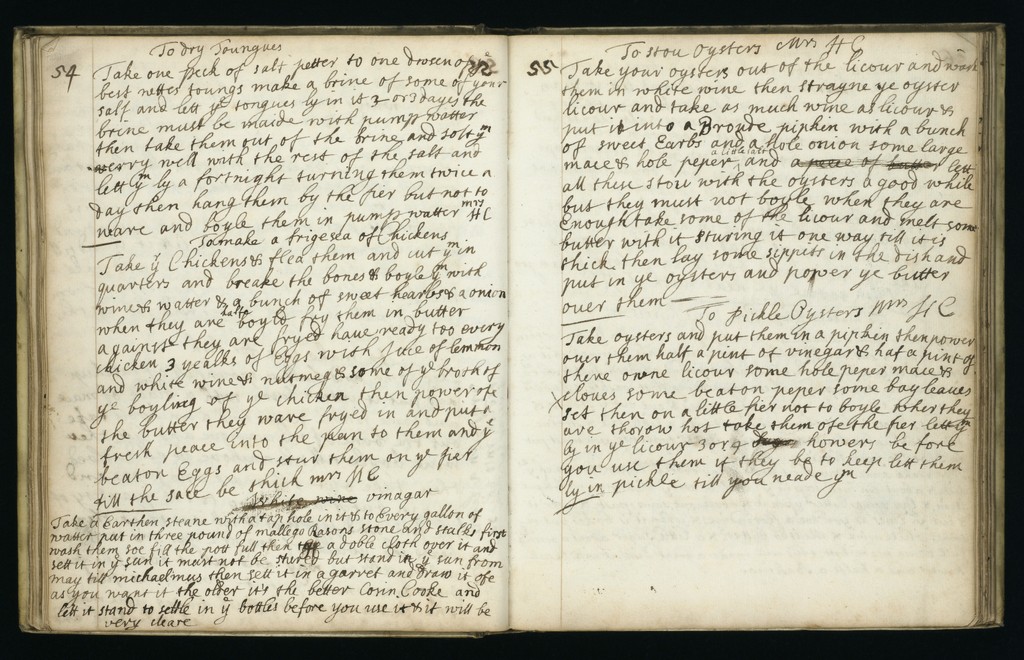 54
To dry Toungues
Take one peck of salt petter to one drosen of ye
best nettes toungs make a brine of some of your
salt and lett ye tongues ly in it 2 or 3 dayes the
brine must be maide with pump watter
then take them out of the brine and solt ym
verry well with the rest of the salt and
lett ym ly a fortnight turning them twice a
day then hang them by the fier but not to
neare and boyle them in pump watter mrs HC
To make a frigesea of Chickens
Take ye Chickens & flea them and cut ym in
quarters and breake the bones & boyle ym with
wine & watter & a bunch of sweet hearbs & a onion
when they are boyld fry them in butter
against they are fryed have ready too every
chicken 3 yealks of Eggs with Juce of lemmon
and white wine & nutmeg & some of ye broth of
ye boyling of ye chicken then power ofe
the butter they ware fryed in and put a
fresh peace into the pan to them and ye
beaton Eggs and stur them on ye fier
till the sace be thick mrs HC
White wine vinagar
Take a Earthen steane with a tap hole in it & to Every gallon of
watter put in three pound of mallego Rasons stone and stalks first
wash them soe fill the pott full then a doble cloth over it and
sett it in ye sun it must not be sturd but stand in ye sun from
may till michaelmus then sett it in a garret and draw it ofe
as you want it the older it is the better Conn Cooke and
lett it stand to settle in ye bottles before you use it & it will be
very cleare
55
To stou Oysters Mrs HC
Take your oysters out of the licour and wash
them in white wine then strayne ye oyster
licour and take as much wine as licour &
put it into a Broude pipkin with a bunch
of sweet Earbs and a hole onion some large
a little salt
mace & hole peper and a peece of butter lett
all these stou with the oysters a good while
but they must not boyle when they are
Enough take some of the licour and melt some
butter with it sturing it one way till it is
thick then lay some sippits in the dish and
put in ye oysters and power ye butter
over them
To Pickle Oysters Mrs HC
Take oysters and put them in a pipkin then power
over them half a pint of vinegar & haf a pint of
there owne licour some hole peper mace &
cloves some beaton peper some bay leaves
set then on a little fier not to boyle when they
are thorow hot take them ofe the fier lett ym
ly in ye licour 3 or 4 howers be fore
you use them if they be to keep lett them
ly in pickle till you neade ym